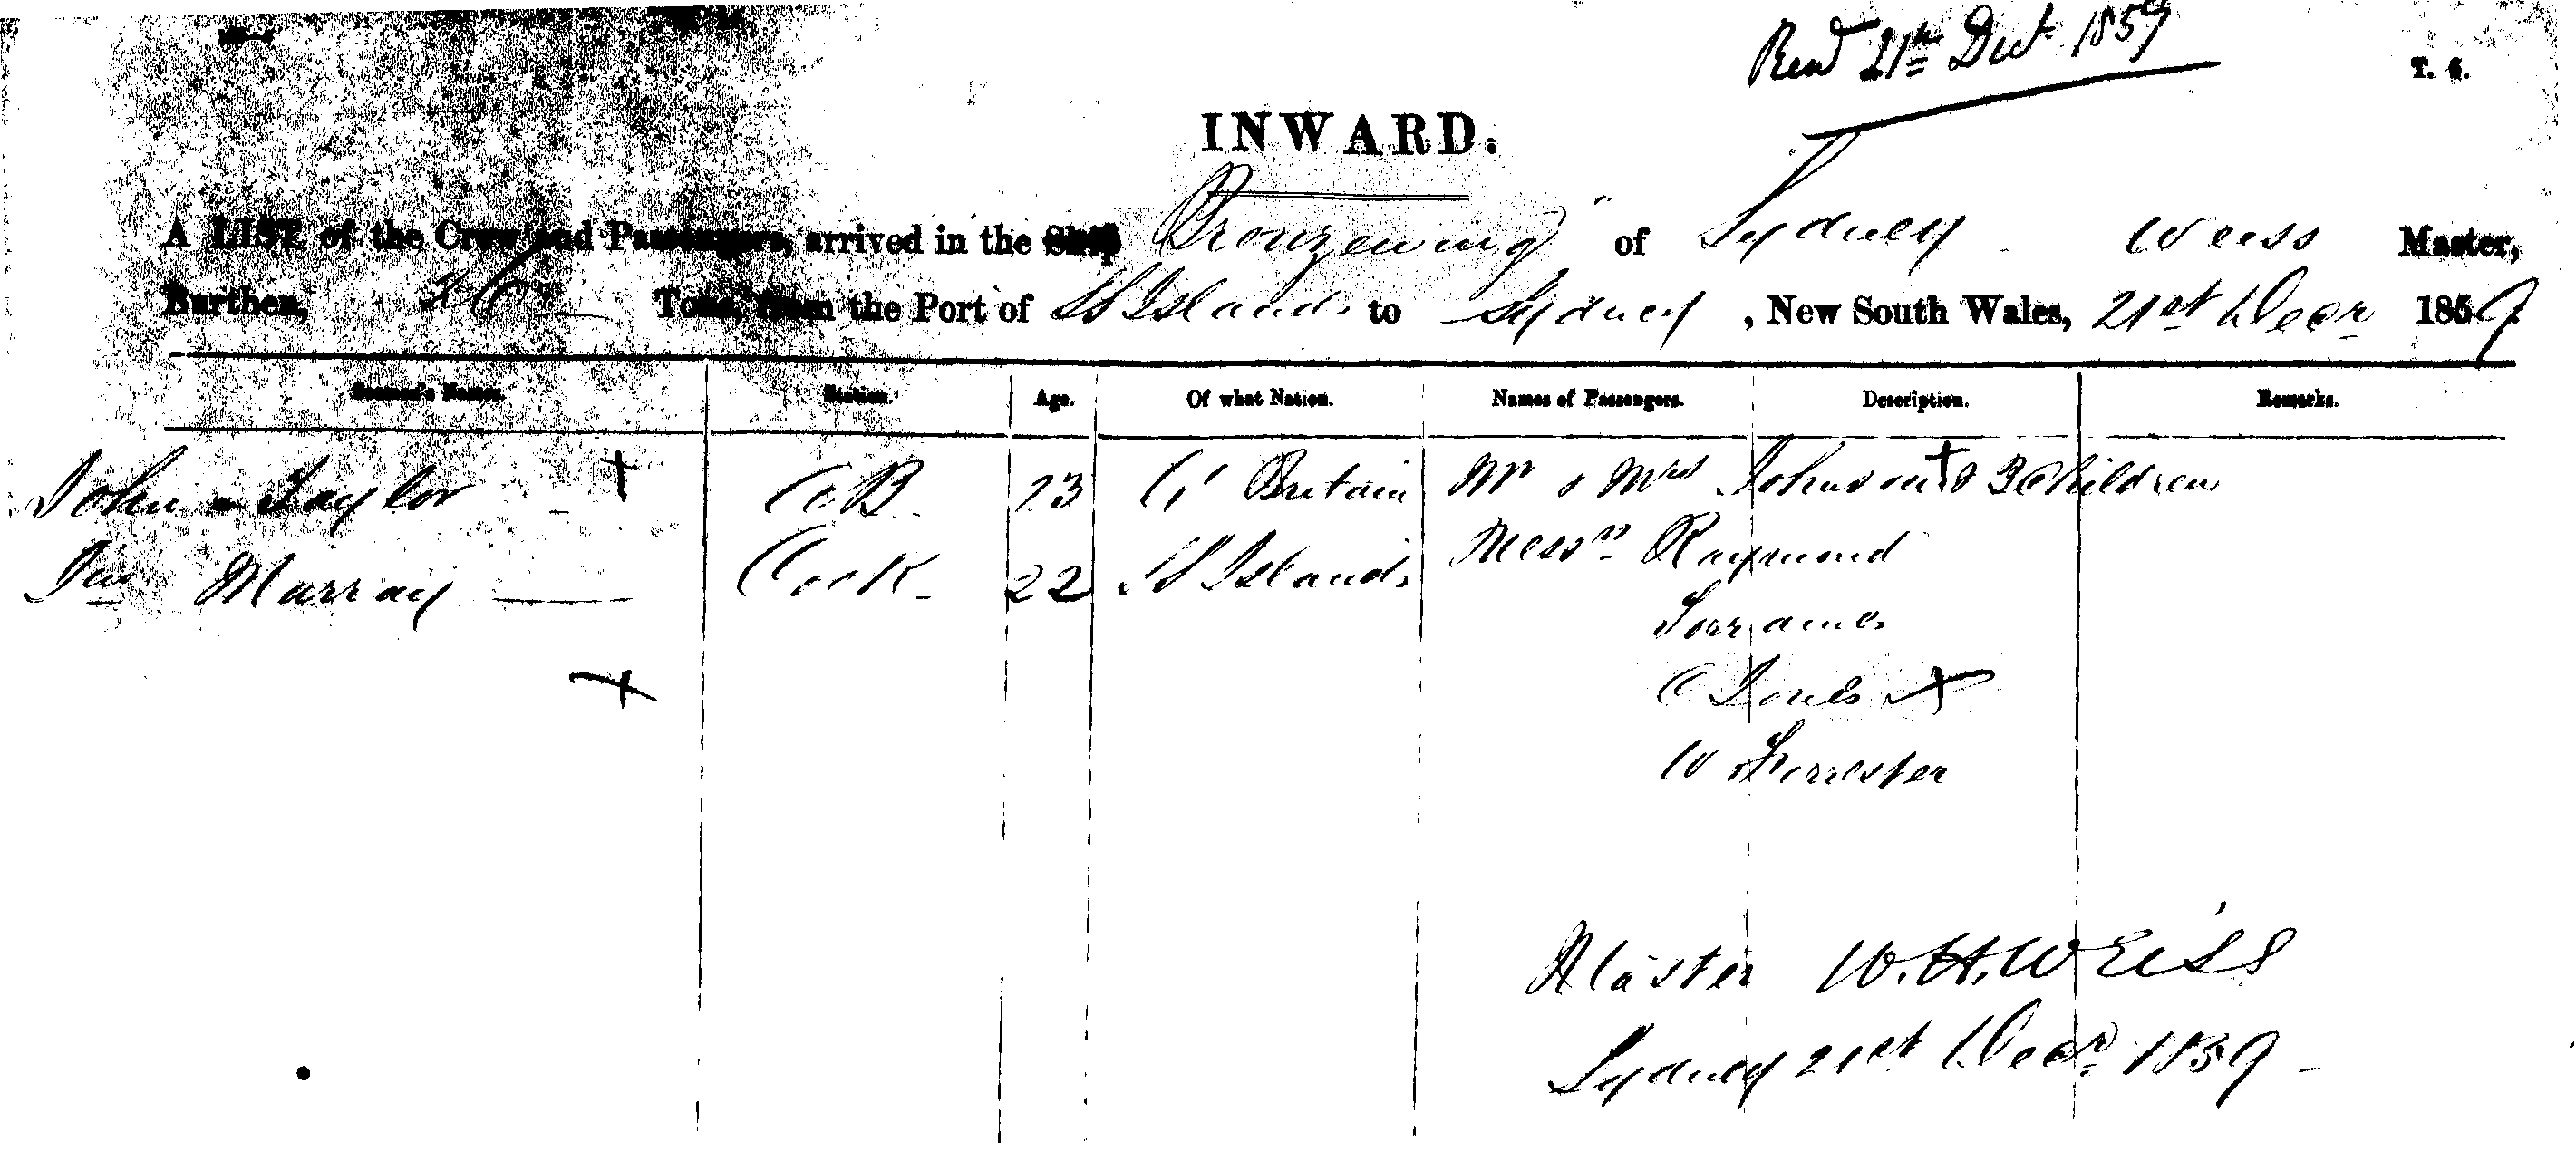 Recd 21st Dect 1859
T. 6.
INWARD.
A LIST of the Crew and Passengers, arrived in the Ship Bronzewing" of Sydney Weiss Master,
Burthen, 26 Tons, from the Port of SS Islands to Sydney, New South Wales, 21st Decr 1859
Seamen's Names. Station. Age. Of what Nation. Names of Passengers. Description. Remarks.
John Taylor + AB. 23 Gt Britain Mr & Mrs Johnson + & 3 Children
Jas Murray Cook 22 SS Islands Messrs Raymond
Lorraine
+ C Jones +
W Forrester
Master W. H. Weiss
Sydney 21st Decr 1859